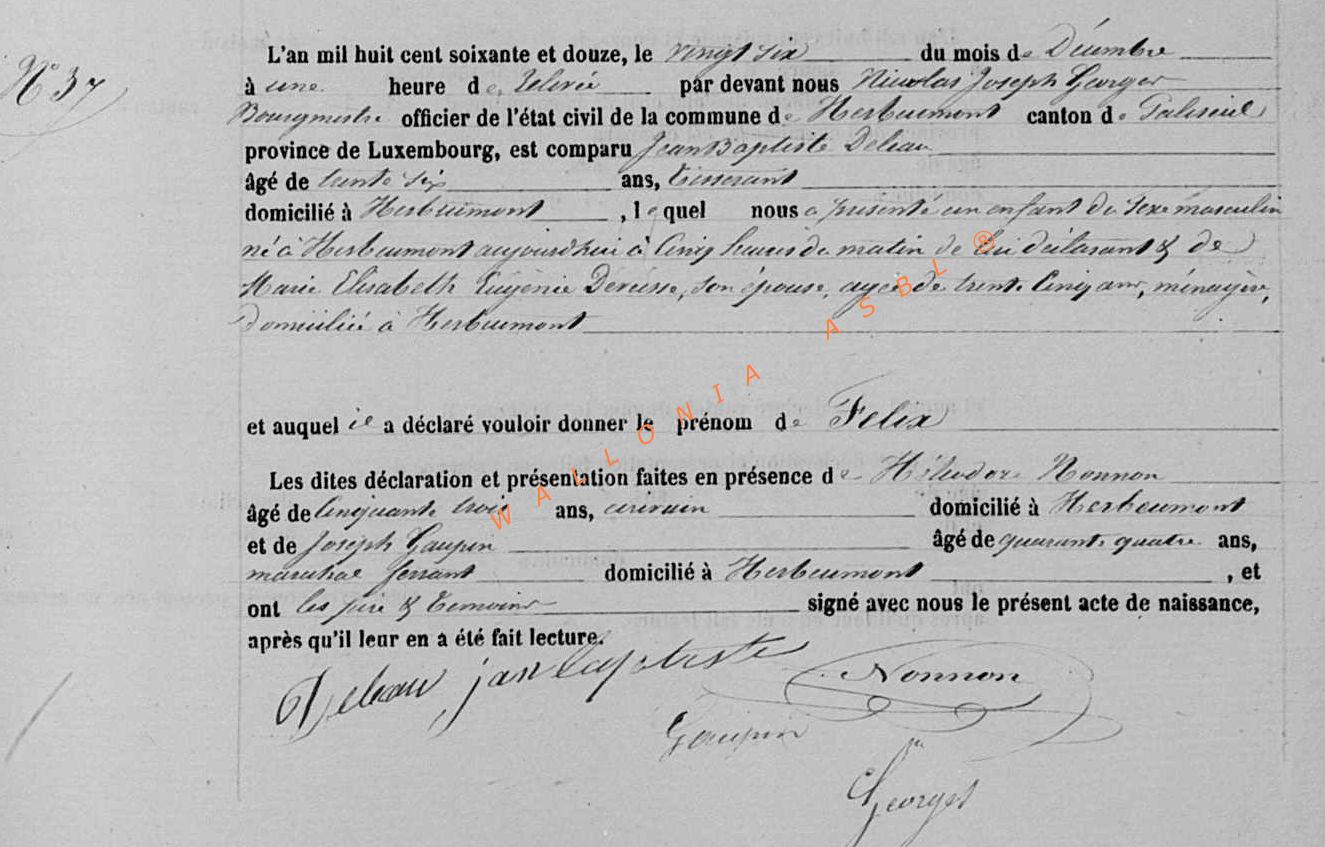 N° 37
L'an mil huit cent soixante et douze, le vingt six du mois de Décembre
à une heure de relevée par devant nous Nicolas Joseph Georges
Bourgmestre officier de l'état civil de la commune de Herbeumont canton de Paliseul
province de Luxembourg, est comparu Jean Baptiste Deleau
âgé de trente six ans, tisserant
domicilié à Herbeumont, lequel nous a présenté un enfant du sexe masculin
né à Herbeumont aujourdhui à cinq heures du matin de lui déclarant & de
Marie Elisabeth Eugénie, son épouse, agée de trente cinq ans, ménagère,
domiciliée à Herbeumont
et auquel il a déclaré vouloir donner le prénom de Felix
Les dites déclaration et présentation faites en présence de Héliodore Nonnon
âgé de cinquante trois ans, domicilié à Herbeumont
et de Joseph Gaupin âgé de quarante quatre ans,
maréchal ferrant domicilié à Herbeumont, et
ont les père & temoins signé avec nous le présent acte de naissance,
après qu'il leur en a été fait lecture.
Deleau jan baptiste
Nonnon
Gaupin
Georges
WALLONIA ASBL ®